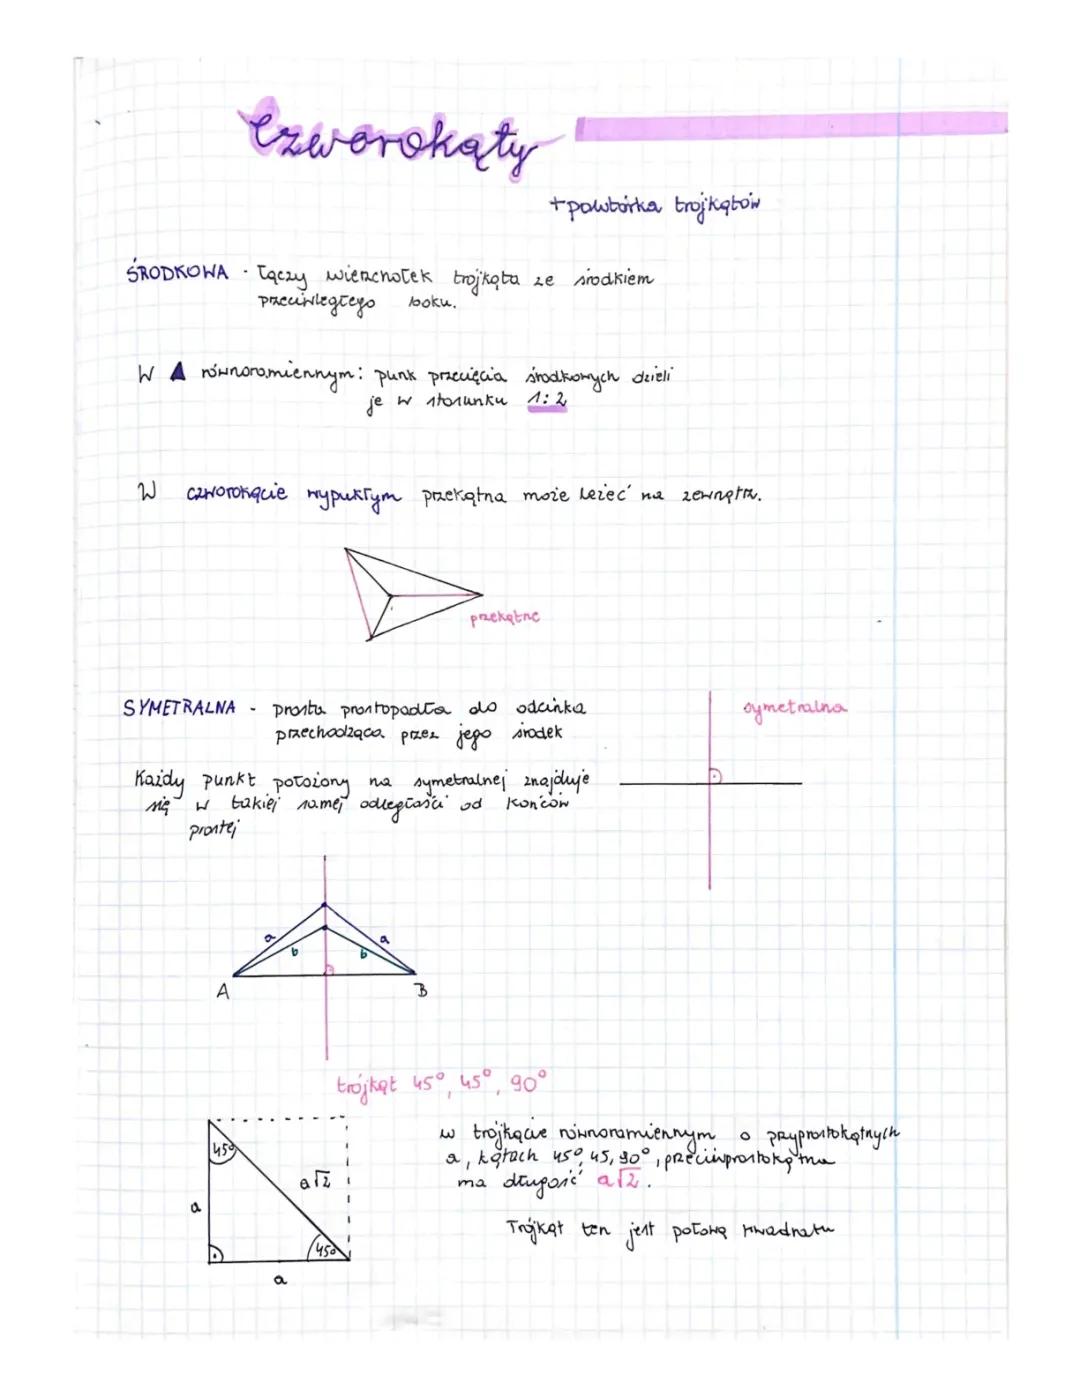 Czworokąty
+powtórka trójkątów
ŚRODKOWA - łączy wierzchołek trójkąta ze środkiem
przeciwległego boku.
W ▲ równoramiennym: punk przecięcia środkowych dzieli
je w stosunku 1:2
W czworokącie wypukłym przekątna może leżeć na zewnątrz.
przekątne
SYMETRALNA - prosta prostopadła do odcinka
przechodząca przez jego środek
symetralna
Każdy punkt położony na symetralnej znajduje
się w takiej samej odległości od końców
prostej
a a
b b
A B
trójkąt 45°, 45°, 90°
w trójkącie równoramiennym o przyprostokątnych
a, kątach 45°, 45, 90°, przeciwprostokątna
ma długość a√2.
Trójkąt ten jest połową kwadratu
45°
a√2
a
45°
a